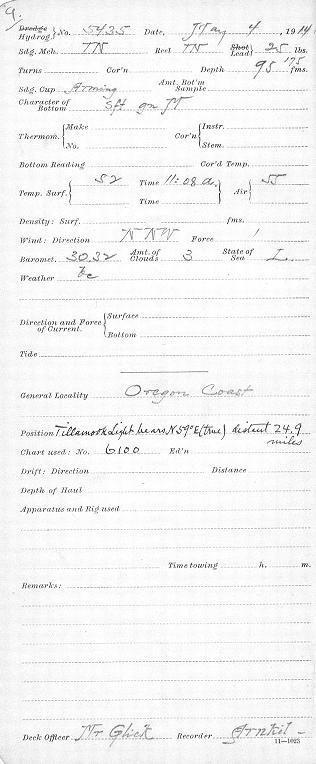 9.
Dredge Hydrog. } No. 5435 Date, May 4, 1914
Sdg. Mch. TN Reel TN Shot Lead } 25 lbs.
Turns Cor'n Depth 95 175 fms.
Sdg. Cup Arming Amt. Bot'm Sample
Character of Bottom Sft gn M
Thermom. { Make No. Cor'n { Instr. Stem.
Bottom Reading Cor'd Temp.
Temp. Surf. { 52 Time 11:08 a. Time } Air { 55
Density: Surf. fms.
Wind: Direction NNW Force 1
Baromet. 30.32 Amt. of Clouds 3 State of Sea L
Weather bc
Direction and Force of Current. { Surface Bottom
Tide
General Locality Oregon Coast
Position Tillamook Light bears N 59° E (true) distant 24.9
miles
Chart used: No. 6100 Ed'n
Drift: Direction Distance
Depth of Haul
Apparatus and Rig used
Time towing h. m.
Remarks:
Deck Officer Mr Glick Recorder
11—1023